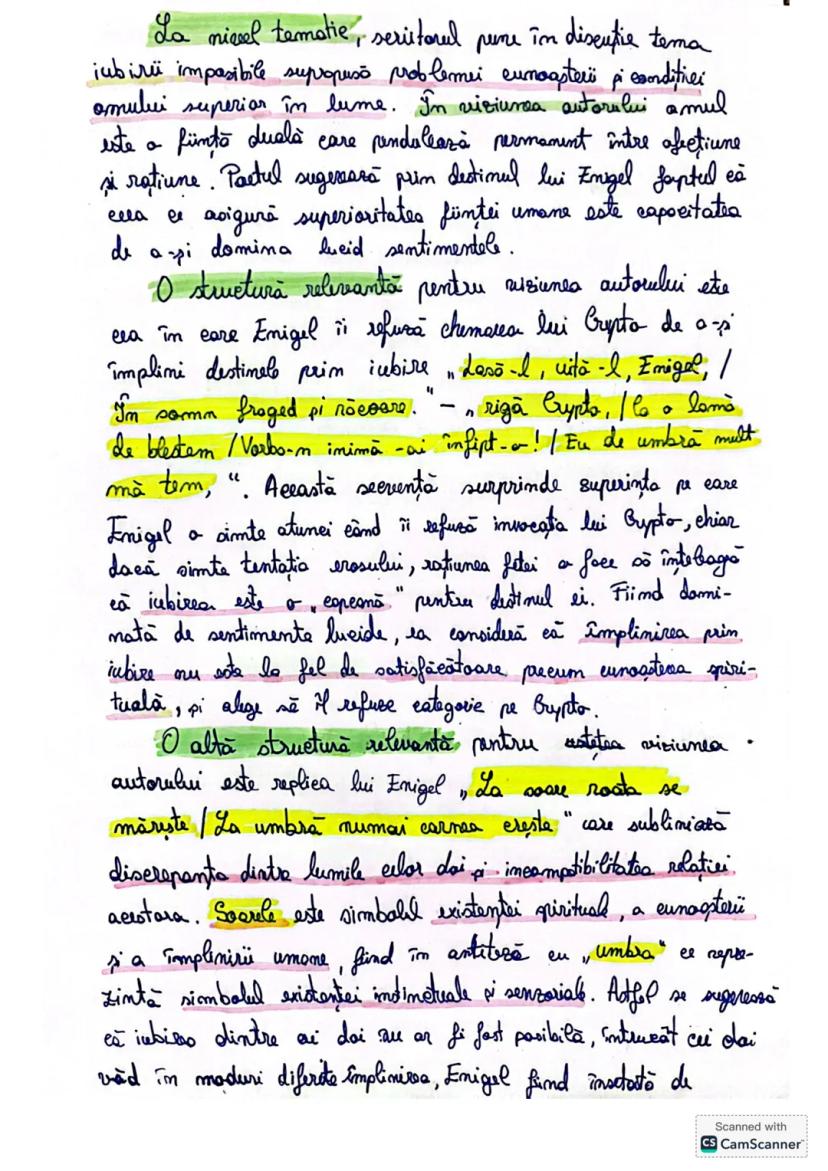 La nivel tematic, scriitorul pune în discuție tema
iubirii imposibile suprapusă problemei cunoașterii și condiției
omului superior în lume. În viziunea autorului omul
este o ființă duală care pendulează permanent între afecțiune
și rațiune. Poetul sugerează prin destinul lui Enigel faptul că
ceea ce asigură superioritatea ființei umane este capacitatea
de a-și domina lucid sentimentele.
O structură relevantă pentru viziunea autorului este
cea în care Enigel îi refuză chemarea lui Crypto de a-și
împlini destinele prin iubire „Lasă-l, uită-l, Enigel, /
În somn fraged și răcoare." – „rigă Crypto, / Ca o lamă
de blestem / Vorba-n inimă-ai înfipt-o! / Eu de umbră mult
mă tem, “. Această secvență surprinde suferința pe care
Enigel o simte atunci când îi refuză invocația lui Crypto, chiar
dacă simte tentația erosului, rațiunea fetei o face să înțeleagă
că iubirea este o „capcană" pentru destinul ei. Fiind domi-
nată de sentimente lucide, ea consideră că împlinirea prin
iubire nu este la fel de satisfăcătoare precum cunoașterea spiri-
tuală, și alege să îl refuze categoric pe Crypto.
O altă structură relevantă pentru viziunea
autorului este replica lui Enigel „La soare roata se
mărește / La umbră numai carnea crește" care subliniază
discrepanța dintre lumile celor doi și incompatibilitatea relației
acestora. Soarele este simbolul existenței spirituale, a cunoașterii
și a împlinirii umane, fiind în antiteză cu „umbra" ce repre-
zintă simbolul existenței instinctuale și senzoriale. Astfel se sugerează
că iubirea dintre cei doi nu ar fi fost posibilă, întrucât cei doi
văd în moduri diferite împlinirea, Enigel fiind însetată de
Scanned with
CS CamScanner